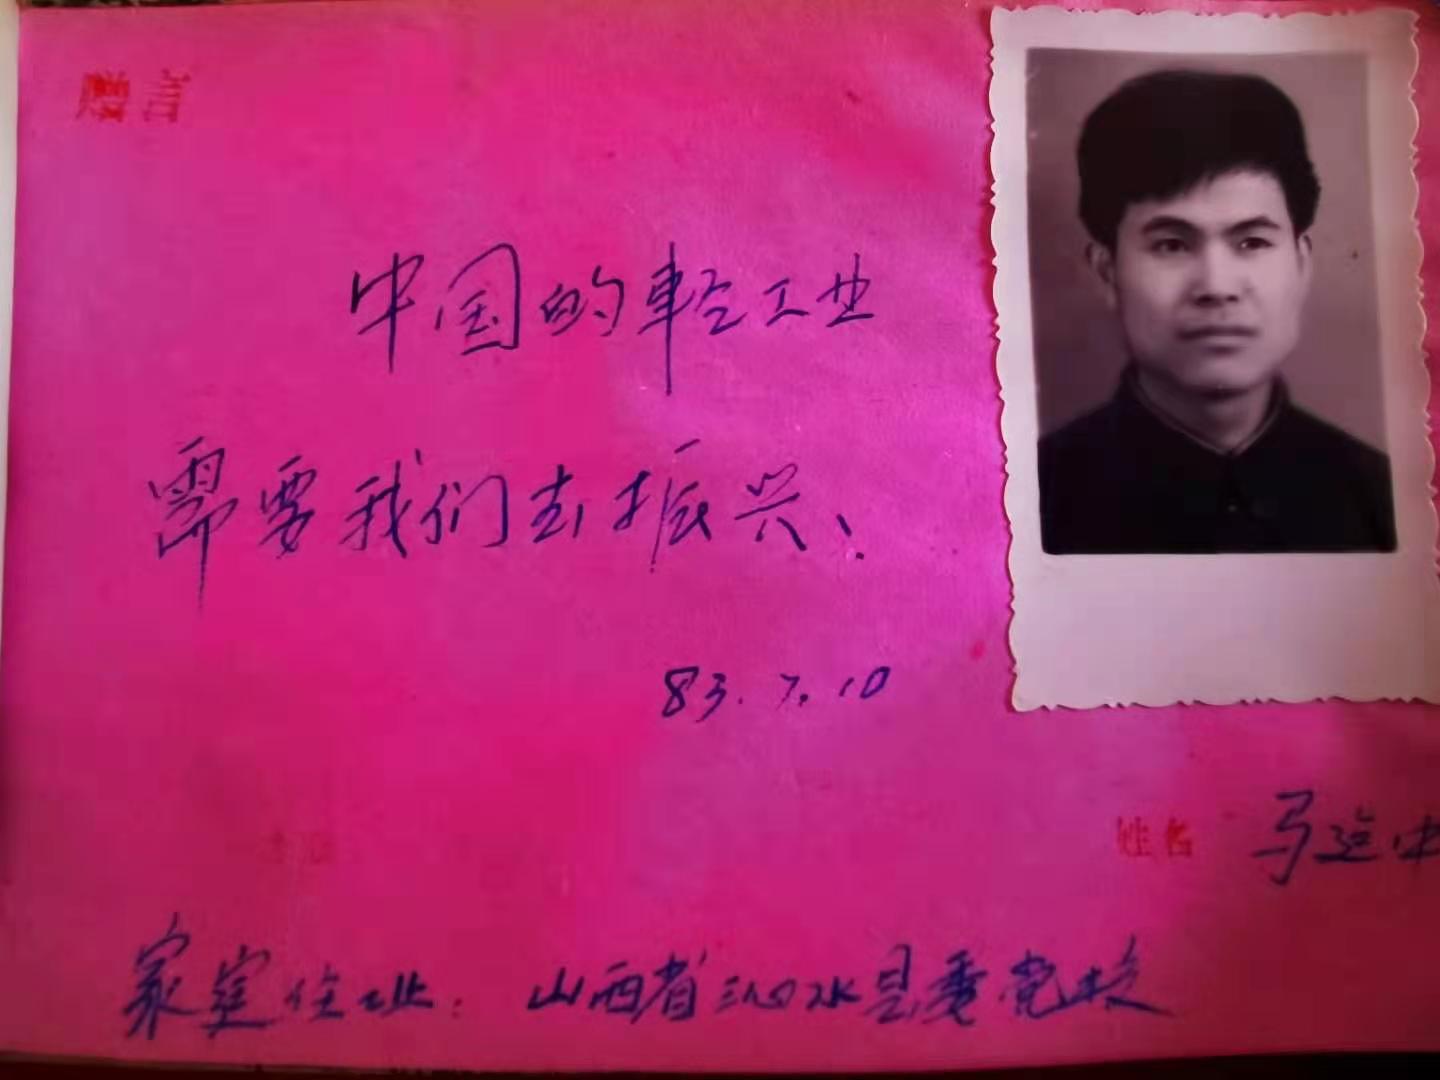 赠言
中国的轻工业
需要我们去振兴！
83.7.10
姓名 马
家庭住址：山西省沁水县委党校